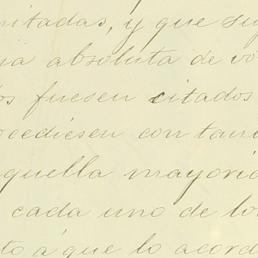 nitadas, y que su
ia absoluta de vo
os fuesen citados
ocediesen con tan
quella mayoria
cada uno de los
to á que lo acord